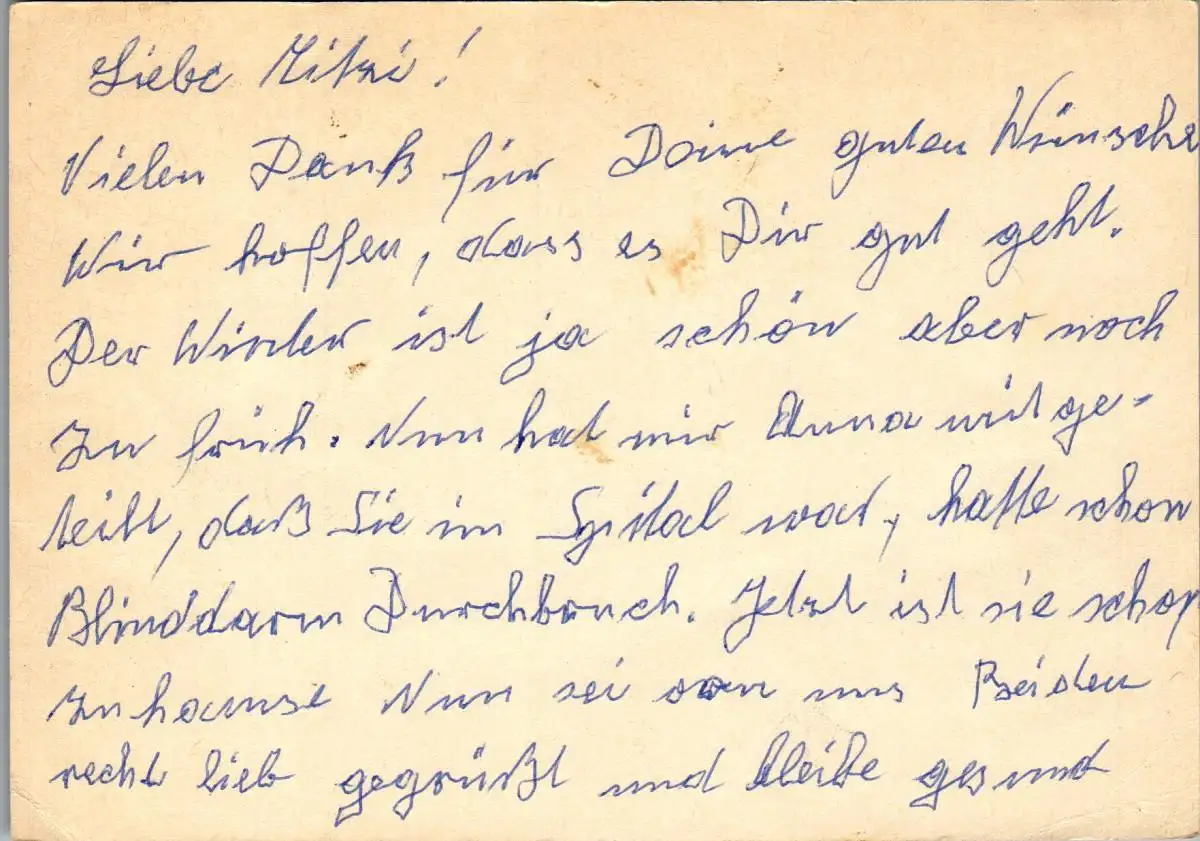 Liebe Mitzi!
Vielen Dank für Deine guten Wünsche
Wir hoffen, dass es Dir gut geht.
Der Winter ist ja schön aber noch
Zu früh. Nun hat mir Anna mitge-
teilt, daß Sie im Spital war, hatte schon
Blinddarm Durchbruch. Jetzt ist sie schon
Zuhause Nun sei von uns Beiden
recht lieb gegrüßt und bleibe gesund